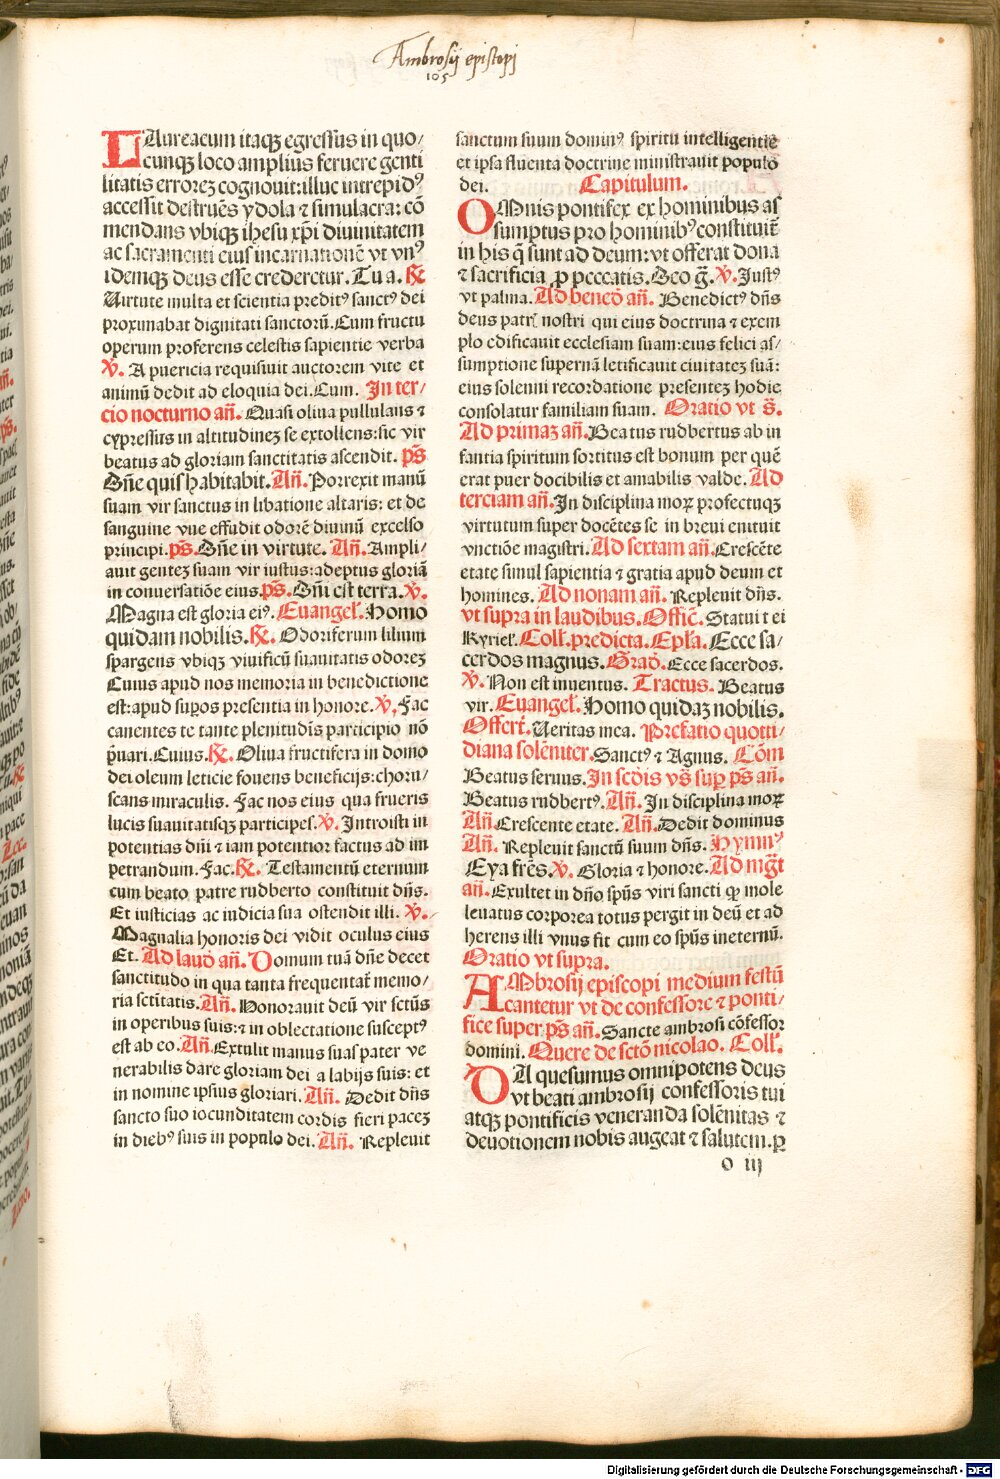 Ambrosij episcopi
105
LAureacum itaqꝫ egressus in quo/
cunqꝫ loco amplius feruere genti
litatis errorez cognouit:illuc intrepidꝰ
accessit destruẽs ydola ⁊ simulacra: cõ
mendans vbiqꝫ ihesu xp̃i diuinitatem
ac sacramenti eius incarnationẽ vt vnꝰ
idemqꝫ deus esse crederetur. Tu a. ℟.
Uirtute multa et scientia preditꝰ sanctꝰ dei
proximabat dignitati sanctorũ. Cum fructu
operum proferens celestis sapientie verba
℣. A puericia requisiuit auctorem vite et
animũ dedit ad eloquia dei. Cum. In ter/
cio nocturno añ. Quasi oliua pullulans ⁊
cypressus in altitudinez se extollens: sic vir
beatus ad gloriam sanctitatis ascendit. ps̃
Dñe quis habitabit. Añ. Porrexit manũ
suam vir sanctus in libatione altaris: et de
sanguine vue effudit odorẽ diuinũ excelso
principi. ps̃. Dñe in virtute. Añ. Ampli/
auit gentez suam vir iustus: adeptus gloriã
in conuersatiõe eius. ps̃. Dñi est terra. ℣.
Magna est gloria eiꝰ. Euangeľ. Homo
quidam nobilis. ℟. Odoriferum lilium
spargens vbiqꝫ viuificũ suauitatis odorez
Cuius apud nos memoria in benedictione
est: apud suꝑos presentia in honore. ℣. Fac
canentes te tante plenitudis participio nõ
p̃uari. Cuius. ℟. Oliua fructifera in domo
dei oleum leticie fouens beneficijs: choru/
scans miraculis. Fac nos eius qua frueris
lucis suauitatisqꝫ participes. ℣. Introisti in
potentias dñi ⁊ iam potentior factus ad im
petrandum. Fac. ℟. Testamentũ eternum
cum beato patre rudberto constituit dñs.
Et iusticias ac iudicia sua ostendit illi. ℣.
Magnalia honoris dei vidit oculus eius
Et. Ad laud̃ añ. Domum tuã dñe decet
sanctitudo in qua tanta frequentat̃ memo/
ria sctitatis. Añ. Honorauit deũ vir sctũs
in operibus suis: ⁊ in oblectatione susceptꝰ
est ab eo. Añ. Extulit manus suas pater ve
nerabilis dare gloriam dei a labijs suis: et
in nomine ipsius gloriari. Añ. Dedit dñs
sancto suo iocunditatem cordis fieri pacez
in diebꝰ suis in populo dei. Añ. Repleuit
sanctum suum dominꝰ spiritu intelligentie
et ipsa fluenta doctrine ministrauit populo
dei. Capitulum.
OMnis pontifex ex hominibus as
sumptus pro hominibꝰ constituit̃
in his q̃ sunt ad deum: vt offerat dona
⁊ sacrificia ꝓ peccatis. Deo g̃. ℣. Justꝰ
vt palma. Ad bened̃ añ. Benedictꝰ dñs
deus patrĩ nostri qui eius doctrina ⁊ exem
plo edificauit ecclesiam suam: eius felici as/
sumptione supernã letificauit ciuitatez suã:
eius solenni recordatione presentez hodie
consolatur familiam suam. Oratio vt s̃.
Ad primaz añ. Beatus rudbertus ab in
fantia spiritum sortitus est bonum per quẽ
erat puer docibilis et amabilis valde. Ad
terciam añ. In disciplina moꝝ profectuqꝫ
virtutum super docẽtes se in breui enituit
vnctiõe magistri. Ad sextam añ. Crescẽte
etate simul sapientia ⁊ gratia apud deum et
homines. Ad nonam añ. Repleuit dñs.
vt supra in laudibus. Offic̃. Statuit ei
Kyrieľ. Coll̃. predicta. Epľa. Ecce sa/
cerdos magnus. Grad̃. Ecce sacerdos.
℣. Non est inuentus. Tractus. Beatus
vir. Euangeľ. Homo quidaz nobilis.
Offert̃. Ueritas mea. Prefatio quotti/
diana solẽniter. Sanctꝰ ⁊ Agnus. Cõm
Beatus seruus. In sedis vs̃ suꝑ ps̃ añ.
Beatus rudbertꝰ. Añ. In disciplina moꝝ
Añ. Crescente etate. Añ. Dedit dominus
Añ. Repleuit sanctũ suum dñs. Hymnꝰ
Eya fres̃. ℣. Gloria ⁊ honore. Ad mg̃t
añ. Exultet in dño sp̃us viri sancti ꝙ mole
leuatus corporea totus pergit in deũ et ad
herens illi vnus fit cum eo sp̃us ineternũ.
Oratio vt supra.
AMbrosij episcopi medium festũ
cantetur vt de confessore ⁊ ponti/
fice super ps̃ añ. Sancte ambrosi cõfessor
domini. Quere de sctõ nicolao. Coll̃.
DA quesumus omnipotens deus
vt beati ambrosij confessoris tui
atqꝫ pontificis veneranda solẽnitas ⁊
deuotionem nobis augeat ⁊ salutem. ꝑ
o iij
Digitalisierung gefördert durch die Deutsche Forschungsgemeinschaft - DFG